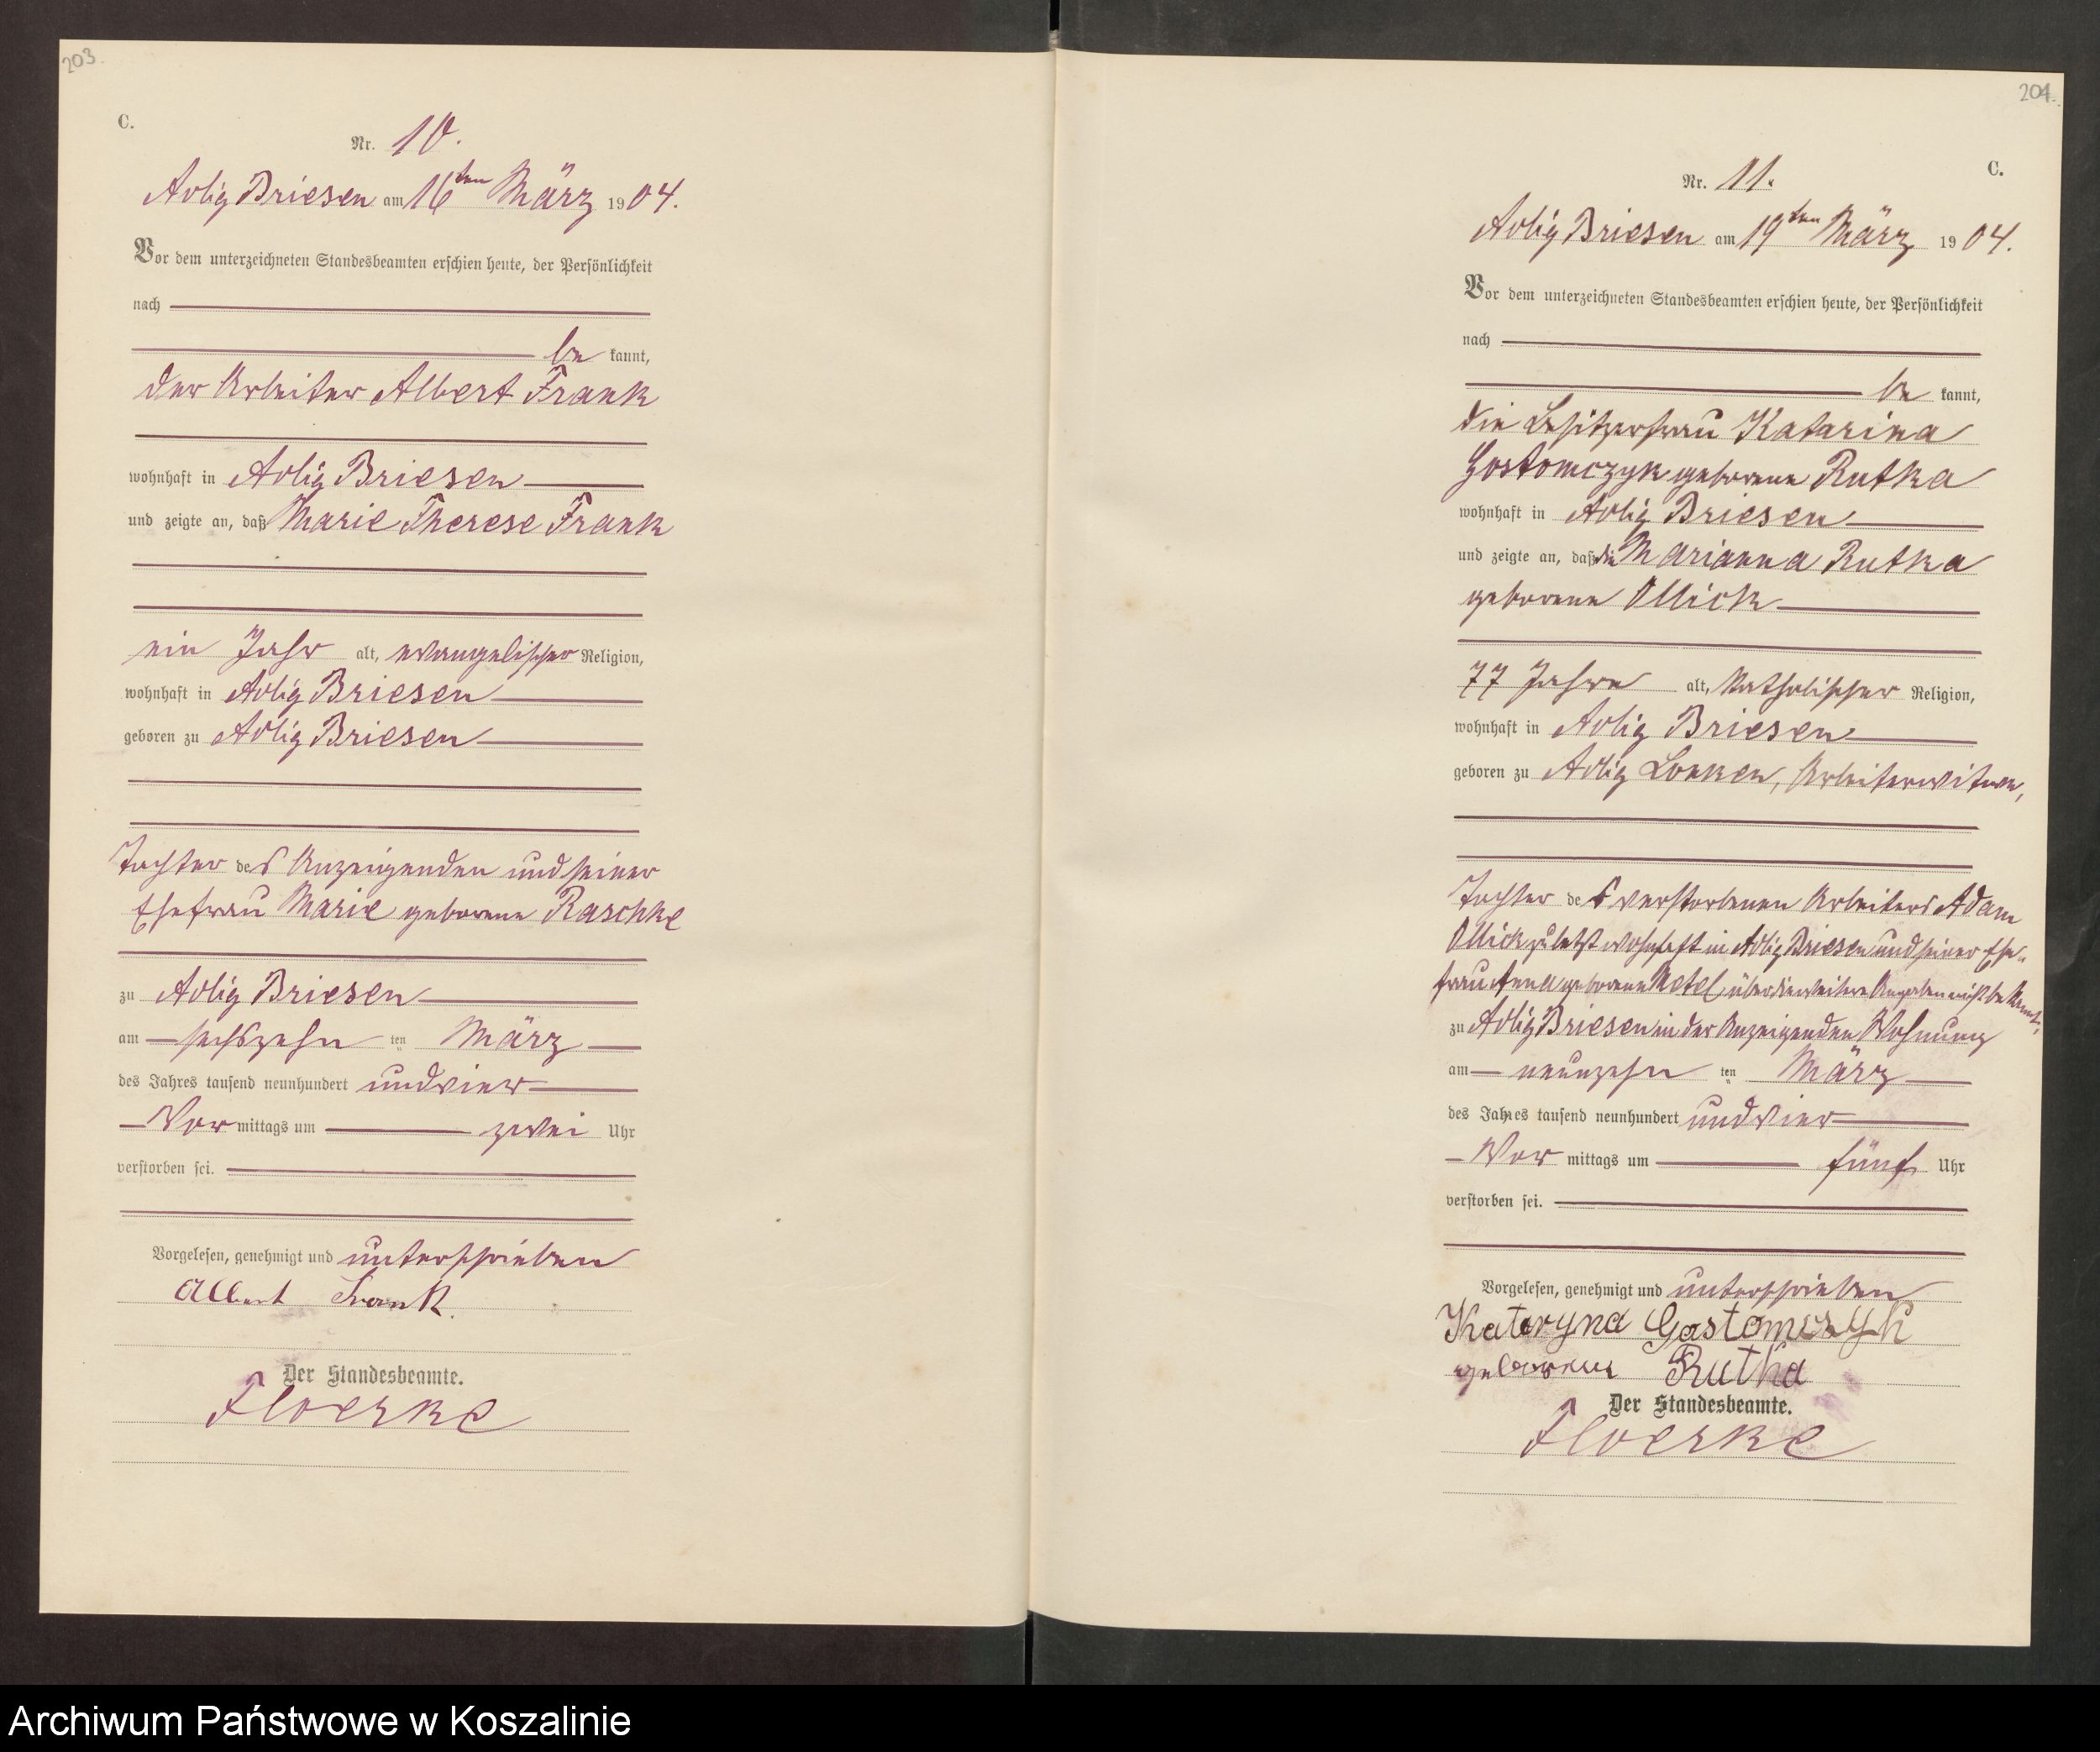 203.
C.
Nr. 10.
Adlig Briesen am 16ten März 1904.
Vor dem unterzeichneten Standesbeamten erschien heute, der Persönlichkeit
nach
be kannt,
der Arbeiter Albert Frank
wohnhaft in Adlig Briesen
und zeigte an, daß Marie Therese Frank
ein Jahr alt, evangelischer Religion,
wohnhaft in Adlig Briesen
geboren zu Adlig Briesen
Tochter des Anzeigenden und seiner
Ehefrau Marie geborene Raschke
zu Adlig Briesen
am sechszehn ten März
des Jahres tausend neunhundert und vier
Vor mittags um zwei Uhr
verstorben sei.
Vorgelesen, genehmigt und unterschrieben
Albert Frank.
Der Standesbeamte.
Floerke
204.
C.
Nr. 11.
Adlig Briesen am 19ten März 1904.
Vor dem unterzeichneten Standesbeamten erschien heute, der Persönlichkeit
nach
be kannt,
die Besitzerfrau Katarina
Gostomczyk geborene Rutka
wohnhaft in Adlig Briesen
und zeigte an, daß die Marianna Rutka
geborene Ollick
77 Jahre alt, katholischer Religion,
wohnhaft in Adlig Briesen
geboren zu Adlig Lonken, Arbeiterwitwe,
Tochter des verstorbenen Arbeiters Adam
Ollick zuletzt wohnhaft in Adlig Briesen und seiner Ehe-
frau Anna geborene über die weitere Angaben nicht bekannt,
zu Adlig Briesen in der Anzeigenden Wohnung
am neunzehn ten März
des Jahres tausend neunhundert und vier
Vor mittags um fünf Uhr
verstorben sei.
Vorgelesen, genehmigt und unterschrieben
Kataryna Gostomczyk
geborene Rutka
Der Standesbeamte.
Floerke
Archiwum Państwowe w Koszalinie